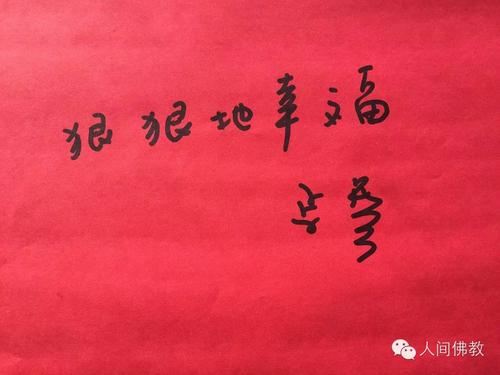 狠狠地幸福
人间佛教